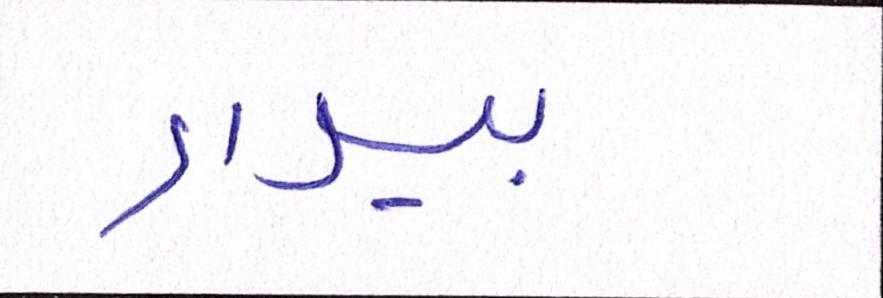 بیدار